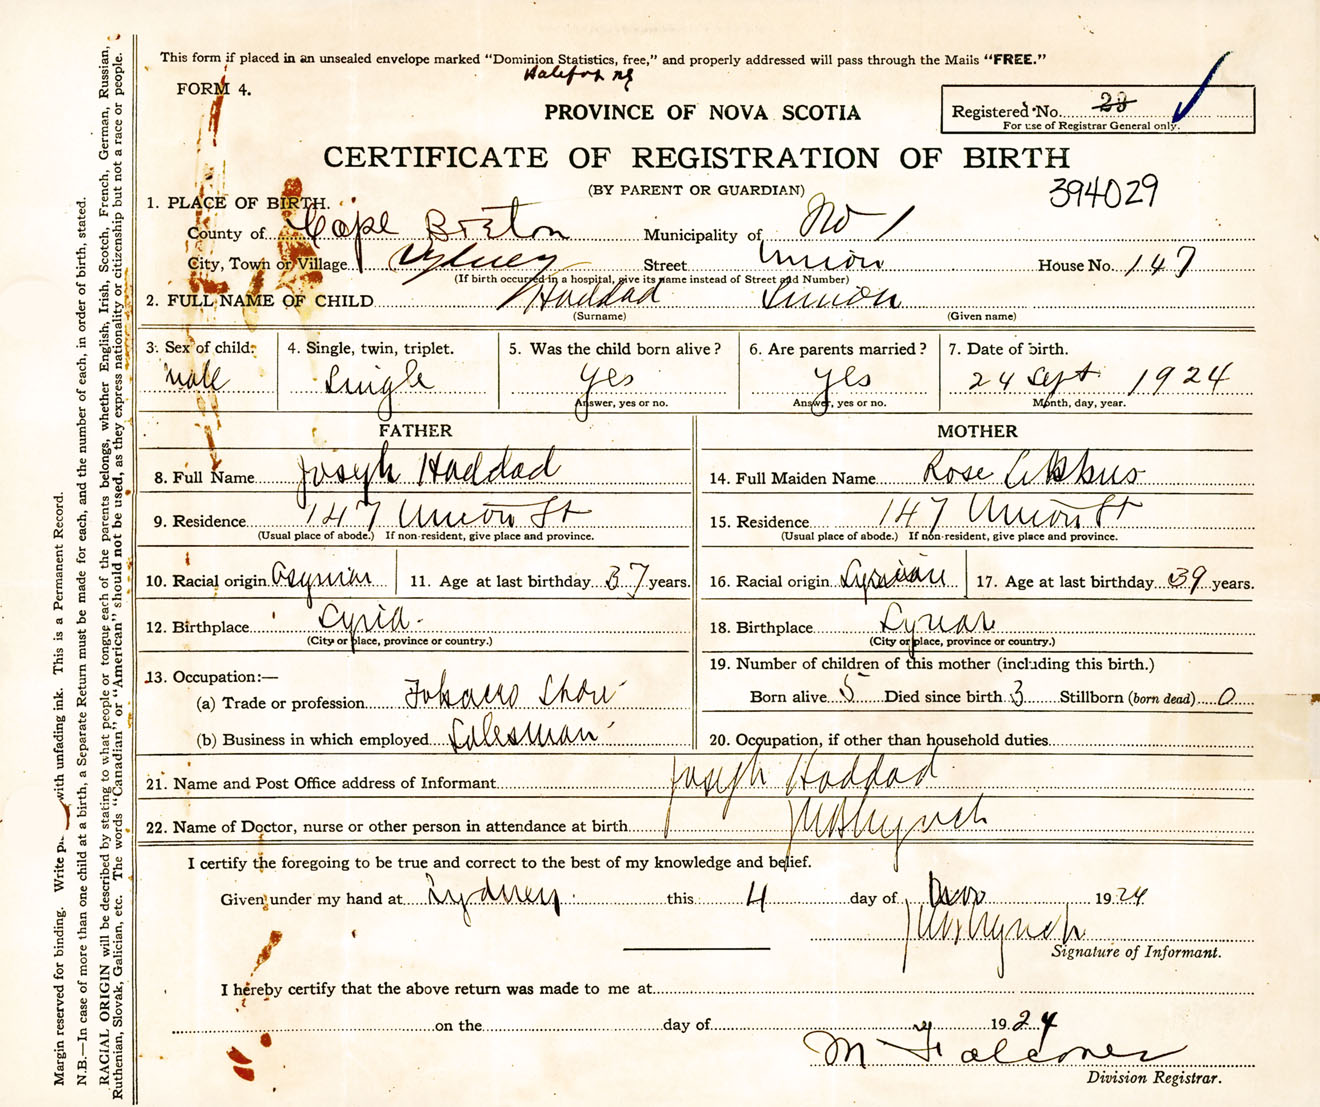 This form if placed in an unsealed envelope marked "Dominion Statistics, free," and properly addressed will pass through the Mails "FREE."
Halifax NS
FORM 4.
PROVINCE OF NOVA SCOTIA
Registered No. 28
For use of Registrar General only.
CERTIFICATE OF REGISTRATION OF BIRTH
(BY PARENT OR GUARDIAN)
394029
1. PLACE OF BIRTH.
County of Cape Breton Municipality of No 1
City, Town or Village Sydney Street Union House No. 147
(If birth occurred in a hospital, give its name instead of Street and Number)
2. FULL NAME OF CHILD Haddad Simon
(Surname) (Given name)
3. Sex of child. 4. Single, twin, triplet. 5. Was the child born alive? 6. Are parents married? 7. Date of birth.
Male Single yes yes 24 Sept 1924
Answer, yes or no. Answer, yes or no. Month, day, year.
FATHER MOTHER
8. Full Name Joseph Haddad 14. Full Maiden Name Rose
9. Residence 147 Union St 15. Residence 147 Union St
(Usual place of abode.) If non-resident, give place and province. (Usual place of abode.) If non-resident, give place and province.
10. Racial origin 11. Age at last birthday 37 years. 16. Racial origin Syrian 17. Age at last birthday 39 years.
12. Birthplace Syria 18. Birthplace Syrian
(City or place, province or country.) (City or place, province or country.)
13. Occupation:— 19. Number of children of this mother (including this birth.)
(a) Trade or profession Tobacco Born alive 5 Died since birth 3 Stillborn (born dead) 0
(b) Business in which employed Salesman 20. Occupation, if other than household duties
21. Name and Post Office address of Informant Joseph Haddad
22. Name of Doctor, nurse or other person in attendance at birth
I certify the foregoing to be true and correct to the best of my knowledge and belief.
Given under my hand at Sydney this 4 day of 1924
Signature of Informant.
I hereby certify that the above return was made to me at
on the day of 1924
M Falconer
Division Registrar.
Margin reserved for binding. Write with unfading ink. This is a Permanent Record.
N.B.—In case of more than one child at a birth, a Separate Return must be made for each, and the number of each, in order of birth, stated.
RACIAL ORIGIN will be described by stating to what people or tongue each of the parents belongs, whether English, Irish, Scotch, French, German, Russian,
Ruthenian, Slovak, Galician, etc. The words "Canadian" or "American" should not be used, as they express nationality or citizenship but not a race or people.